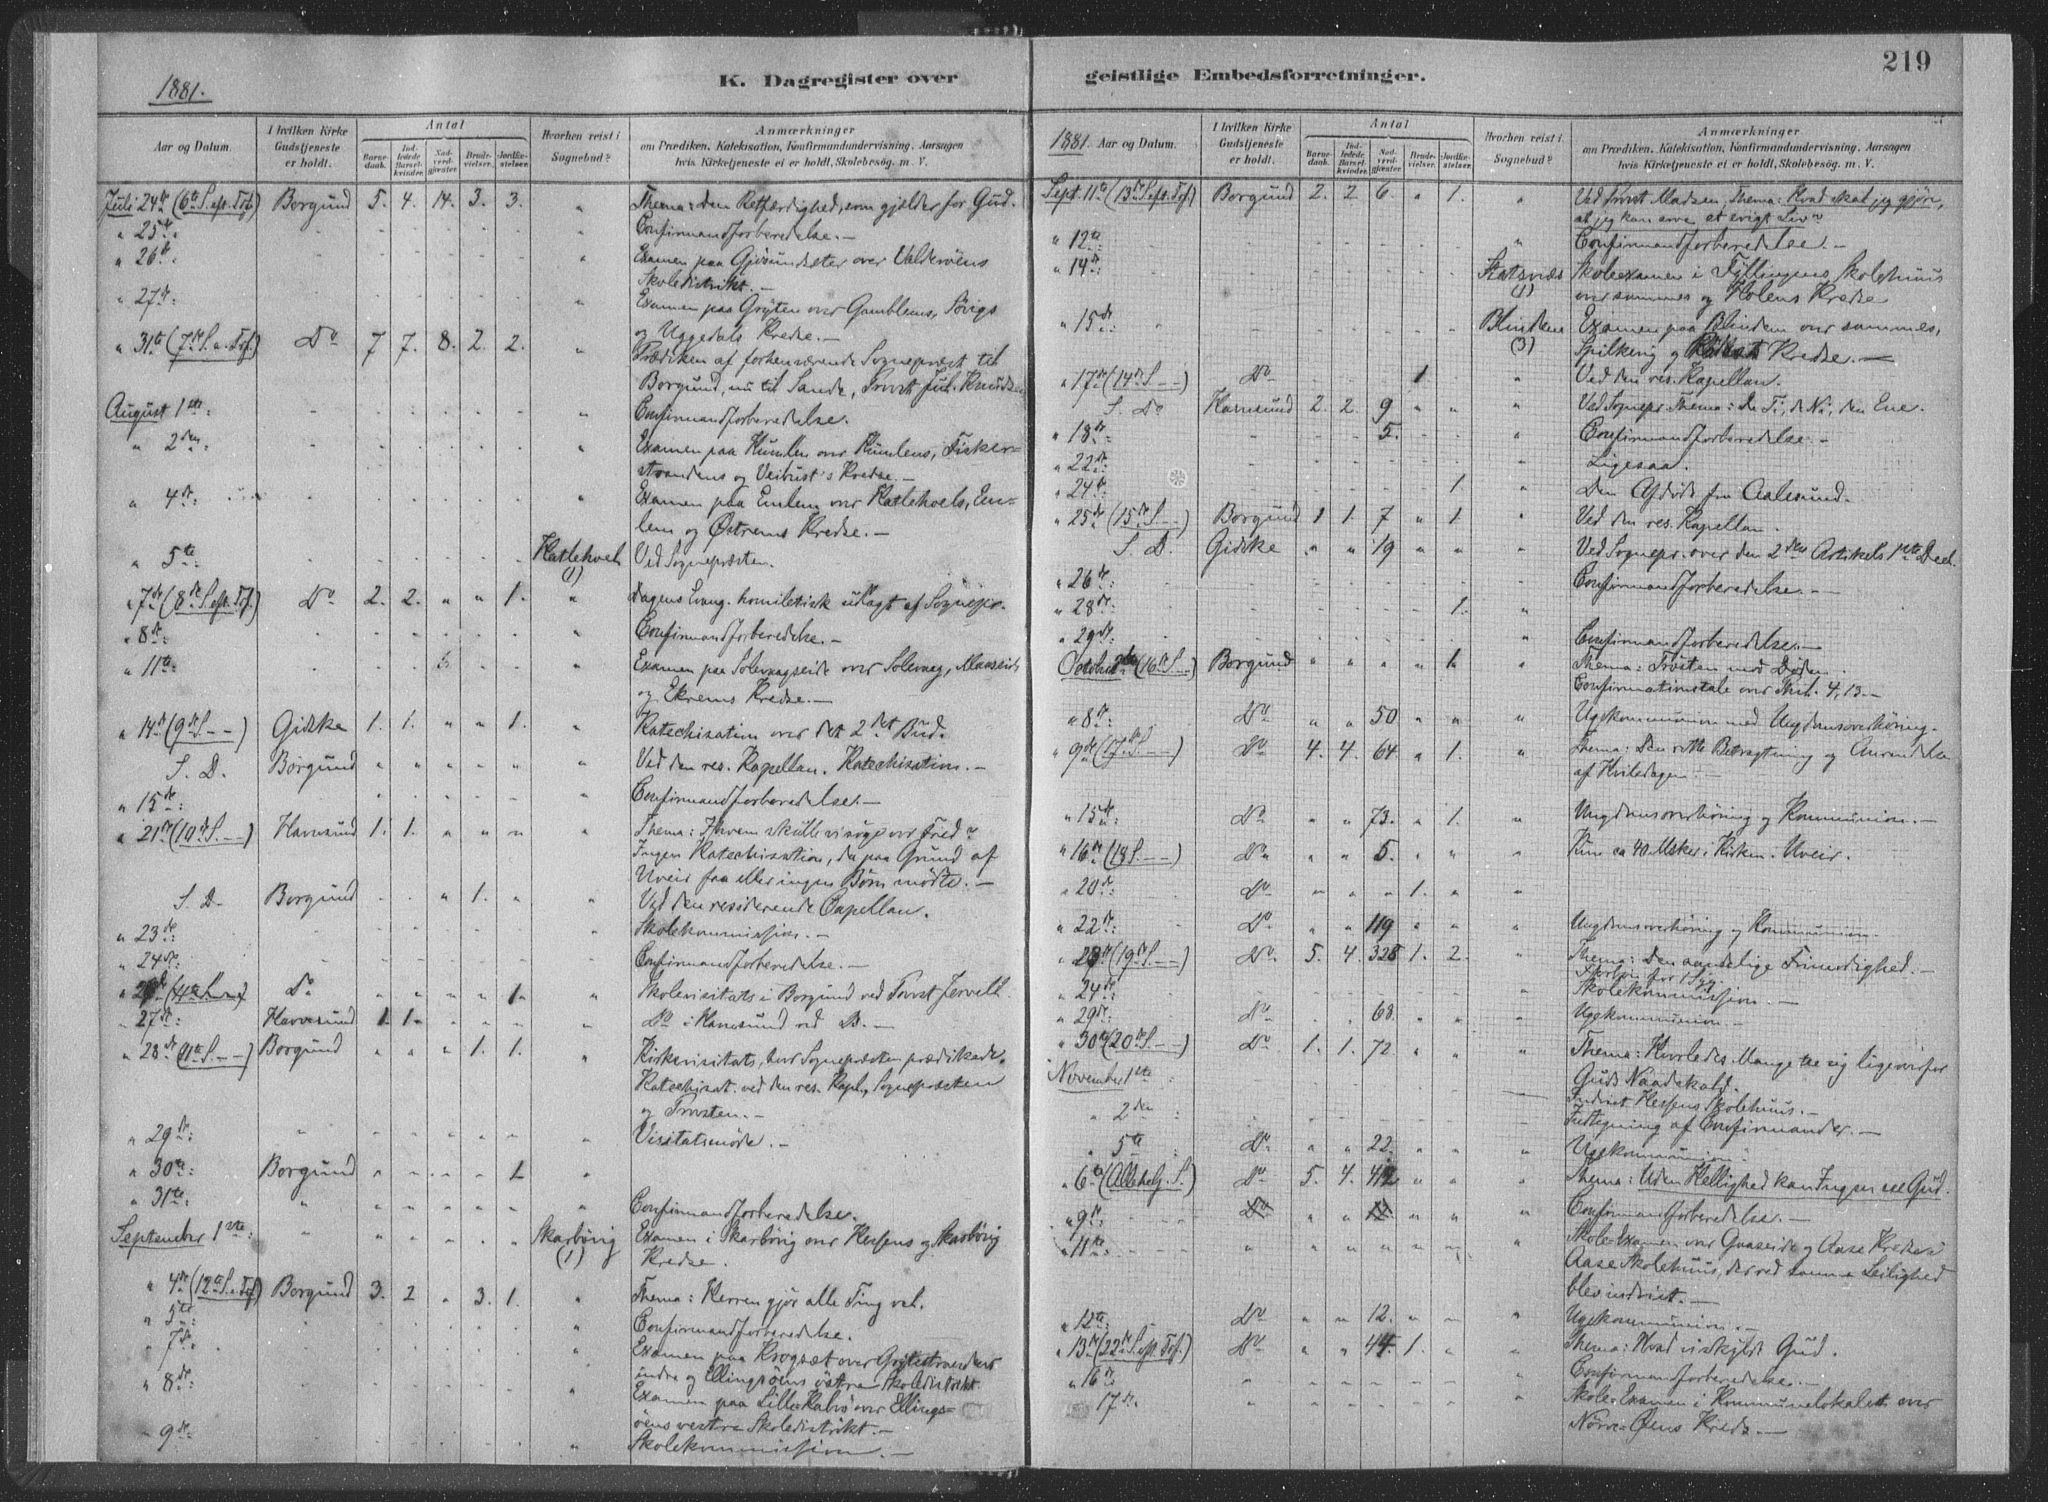 219
K. Dagregister over geistlige Embedsforretninger.
1881.
Aar og Datum.
I hvilken Kirke Gudstjeneste er holdt.
Antal
Barnedaab.
Indledede Barselkvinder.
Nadverdgjæster
Brudevielser.
Jordfæstelser.
Hvorhen reist i Sognebud?
Anmærkninger
om Prædiken, Katekisation, Konfirmandundervisning. Aarsagen
hvis Kirketjeneste ei er holdt, Skolebesøg. m. V.
Juli 24de (6te S. eft. Tref.) Borgund 5. 4. 14. 3. 3. " Thema: Den Retfærdighed, som gjelder for Gud.
" 25de " Confirmandforberedelse. —
" 26de " Examen paa Gjøsundsæter over Valderøens
Skoledistrikt. —
" 27de " Examen paa Gryten over Gamblems, Søvigs
og Uggedals Kredse. —
" 31te (7de S. e. Tref.) Do 7 7. 8. 2. 2. " Prædiken af forhenværende Sognepræst til
Borgund, nu til Sande, Provst Jul. Knudsen
August 1ste: " Confirmandforberedelse.
" 2den " Examen paa Humlen over Humlens, Fisker-
strandens og Veibust's Kredse. —
" 4de: " Examen paa Emlem over Ratlehvels, Em-
lem og Østrems Kredse. —
" 5te Ratlehvel (1) Ved Sognepræsten.
" 7de (8de S. eft. Tref.) Do 2. 2. " " 1. " Dagens Evang. homiletisk udlagt af Sognepr.
" 8de: " Confirmandforberedelse. —
" 11te: " Examen paa Solevaagseide over Solevaag, Mauseids
og Ekrems Kredse. —
" 14de (9de S. — —) Gidske 1. 1. " " 1. " Katechisation over det 2det Bud.
S. D. Borgund " " " " " " Ved den res. Kapellan. Katechisation. —
" 15de: Confirmandforberedelse. —
" 21de (10de S. — —) Havnsund 1. 1. " " " " Thema: I hvem skulle vi søge vor Fred?
Ingen Katechisation, da paa Grund af
Uveir faa eller ingen Børn mødte. —
S. D. Borgund " 1. " " Ved den residerende Capellan.
" 23de: " Skolekommission. —
" 24de: " Confirmandforberedelse. —
Do " " " " 1. " Skolevisitats i Borgund ved Provst Jervell.
" 27de: Havnsund 1. 1. " Do i Havnsund ved D. —
" 28de (11te S. — —) Borgund " " " 1. 1. " Kirkevisitats, hvor Sognepræsten prædikede.
Katechisat. ved den res. Kapl., Sognepræsten
og Provsten. —
" 29de: Visitatsmøde. —
" 30te: Borgund 1. "
" 31te: " Confirmandforberedelse.
September 1ste: Skarbøvig (1) Examen i Skarbøvig over Hessens og Skarbøvig
Kredse.
" 4de (12te S. e. Tref.) Borgund 3. 2 " 3. 1. " Thema: Herren gjør alle Ting vel.
" 5te " Confirmandforberedelse.
" 7de Examen paa Krogsæt over Grytestrandens
indre og Ellingsøens østre Skoledistrikt.
" 8de: " Examen paa Lille Kalvø over Ellings-
øens vestre Skoledistrikt. —
" 9de: " Skolekommission. —
1881. Aar og Datum.
I hvilken Kirke Gudstjeneste er holdt.
Antal
Barnedaab.
Indledede Barselkvinder.
Nadverdgjæster
Brudevielser.
Jordfæstelser.
Hvorhen reist i Sognebud?
Anmærkninger
om Prædiken, Katekisation, Konfirmandundervisning. Aarsagen
hvis Kirketjeneste ei er holdt, Skolebesøg. m. V.
Sept. 11te (13de S. eft. Tref.) Borgund 2. 2. 6. " 1. " Ved Provst Madsen, Thema: Hvad skal jeg gjøre,
at jeg kan arve et evigt Liv?
" 12te " Confirmandforberedelse. —
" 14de: (1) Skoleexamen i Tyllingens Skolehuus
over sammes og Holens Kredse
" 15de Blindem (3) Examen paa Blindem over sammes,
Spilkevig og Kredse. —
" 17de (14de S. — —) Do 1 " Ved den res. Kapellan.
S. Do Havnsund 2. 2. 9 " " " Ved Sognepr. Thema: De Ti, de Ni, den Ene.
" 18de 5. " Confirmandforberedelse. —
" 22de: " Ligesaa.
" 24de 1. " Den Afdøde fra Aalesund.
" 25de (15de S. — —) Borgund 1 1. 7 " 1. " Ved den res. Kapellan.
S. D. Gidske " " 19 " " " Ved Sognepr. over den 2den Artikels 1ste Deel.
" 26de Confirmandforberedelse. —
" 28de: 1. "
" 29de " Confirmandforberedelse.
October 2den (16de S. — —) Borgund " " " " 1. " Thema: Trøsten mod Døden
Confirmationstale over 4, 13. —
" 8de: Do " " 50 " " " Ugekommunion med Ungdomsoverhøring.
" 9de (17de S. — —) Do 4. 4. 64 " 1. " Thema: Den rette Betragtning og Anvendelse
af Hviledagen. —
" 15de Do " " 73. " 1. " Ungdomsoverhøring og Kommunion. —
" 16de (18 S. — —) Do " " 5. " " " Kun ca 40 Msker i Kirken. Uveir.
" 20de: Do " " " 1. " "
" 22de: Do " " 119 " " " Ungdomsoverhøring og Kommunion.
" 23de (19de S. — —) Do 5. 4. 328 1. 2. " Thema: Den aandelige Frimodighed. —
" 24de: Skolekommission. —
" 29de: Do 68. " " " Ugekommunion. —
" 30te (20de S. — —) Do 1. 1. 72. " " " Thema: Hvorledes Mange te sig ligeoverfor
Guds Naadekald.
November 1ste Indviet Hessens Skolehuus. —
" 2den : Indtegning af Confirmander. —
" 5te Do " " 22. " " " Ugekommunion.
" 6te (Allehelg. S.) Do 5. 4. 412 " " " Thema: Uden Hellighed kan Ingen see Gud.
" 9de: Do " Confirmandforberedelse. —
" 11te " Skole-Examen over Gaaseide og Aase Kredse i
Aase Skolehuus, der ved samme Leilighed
blev indviet. —
" 12te: Do " " 12. " " " Ugekommunion. —
" 13de (22de S. eft. Tref.) Do " " 44. 1. " " Thema: Hvad vi skyldt Gud.
" 16de: " Confirmandforberedelse. —
" 17de. " Skole-Examen i Kommunelokalet over
Nørve-Øens Kreds. —